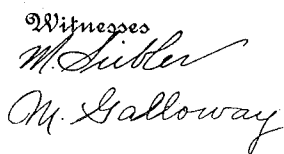 Witnesses
M. Siebler
M. Galloway